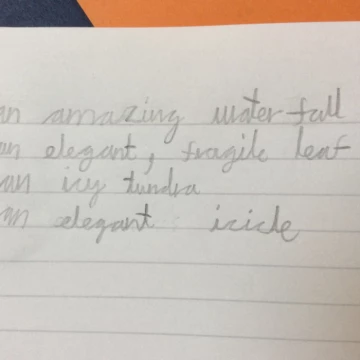 an amazing waterfall
an elegant, fragile leaf
an icy tundra
an elegant icicle